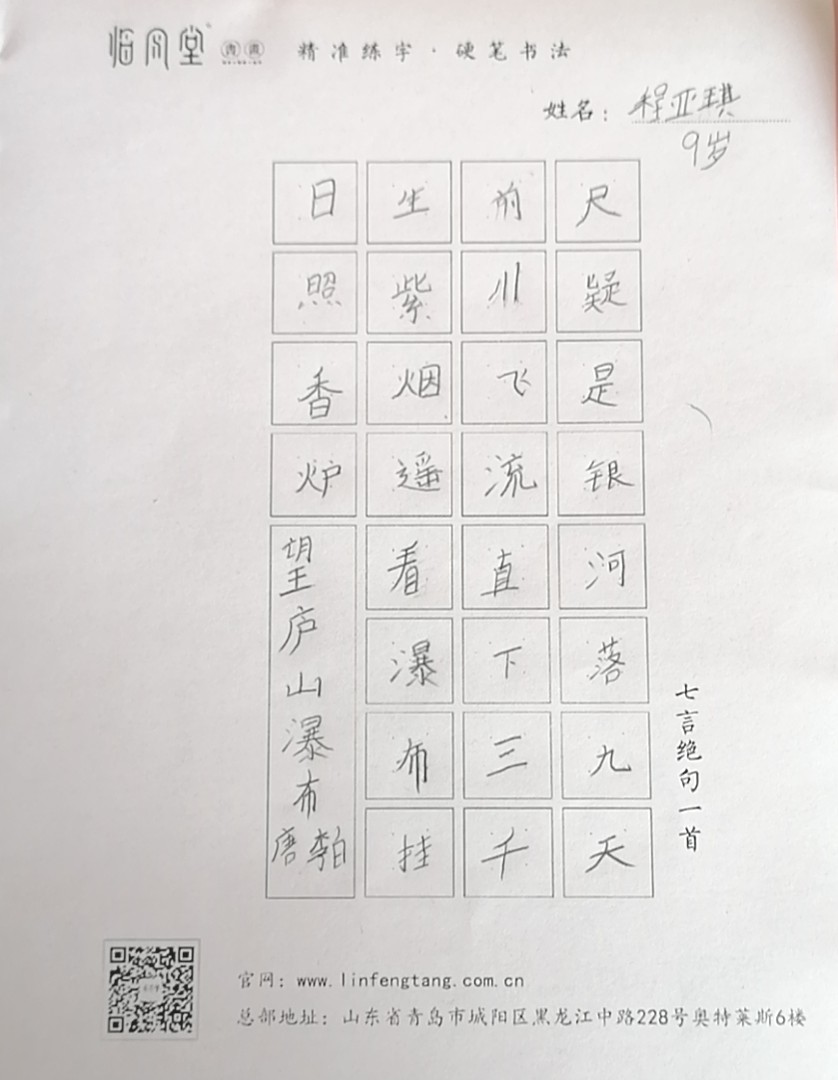 临风堂
精准练字·硬笔书法
姓名：程亚琪
9岁
日照香炉
生紫烟遥看瀑布挂
前川飞流直下三千
尺疑是银河落九天
望庐山瀑布
唐李白
七言绝句一首
官网：www.linfengtang.com.cn
总部地址：山东省青岛市城阳区黑龙江中路228号奥特莱斯6楼